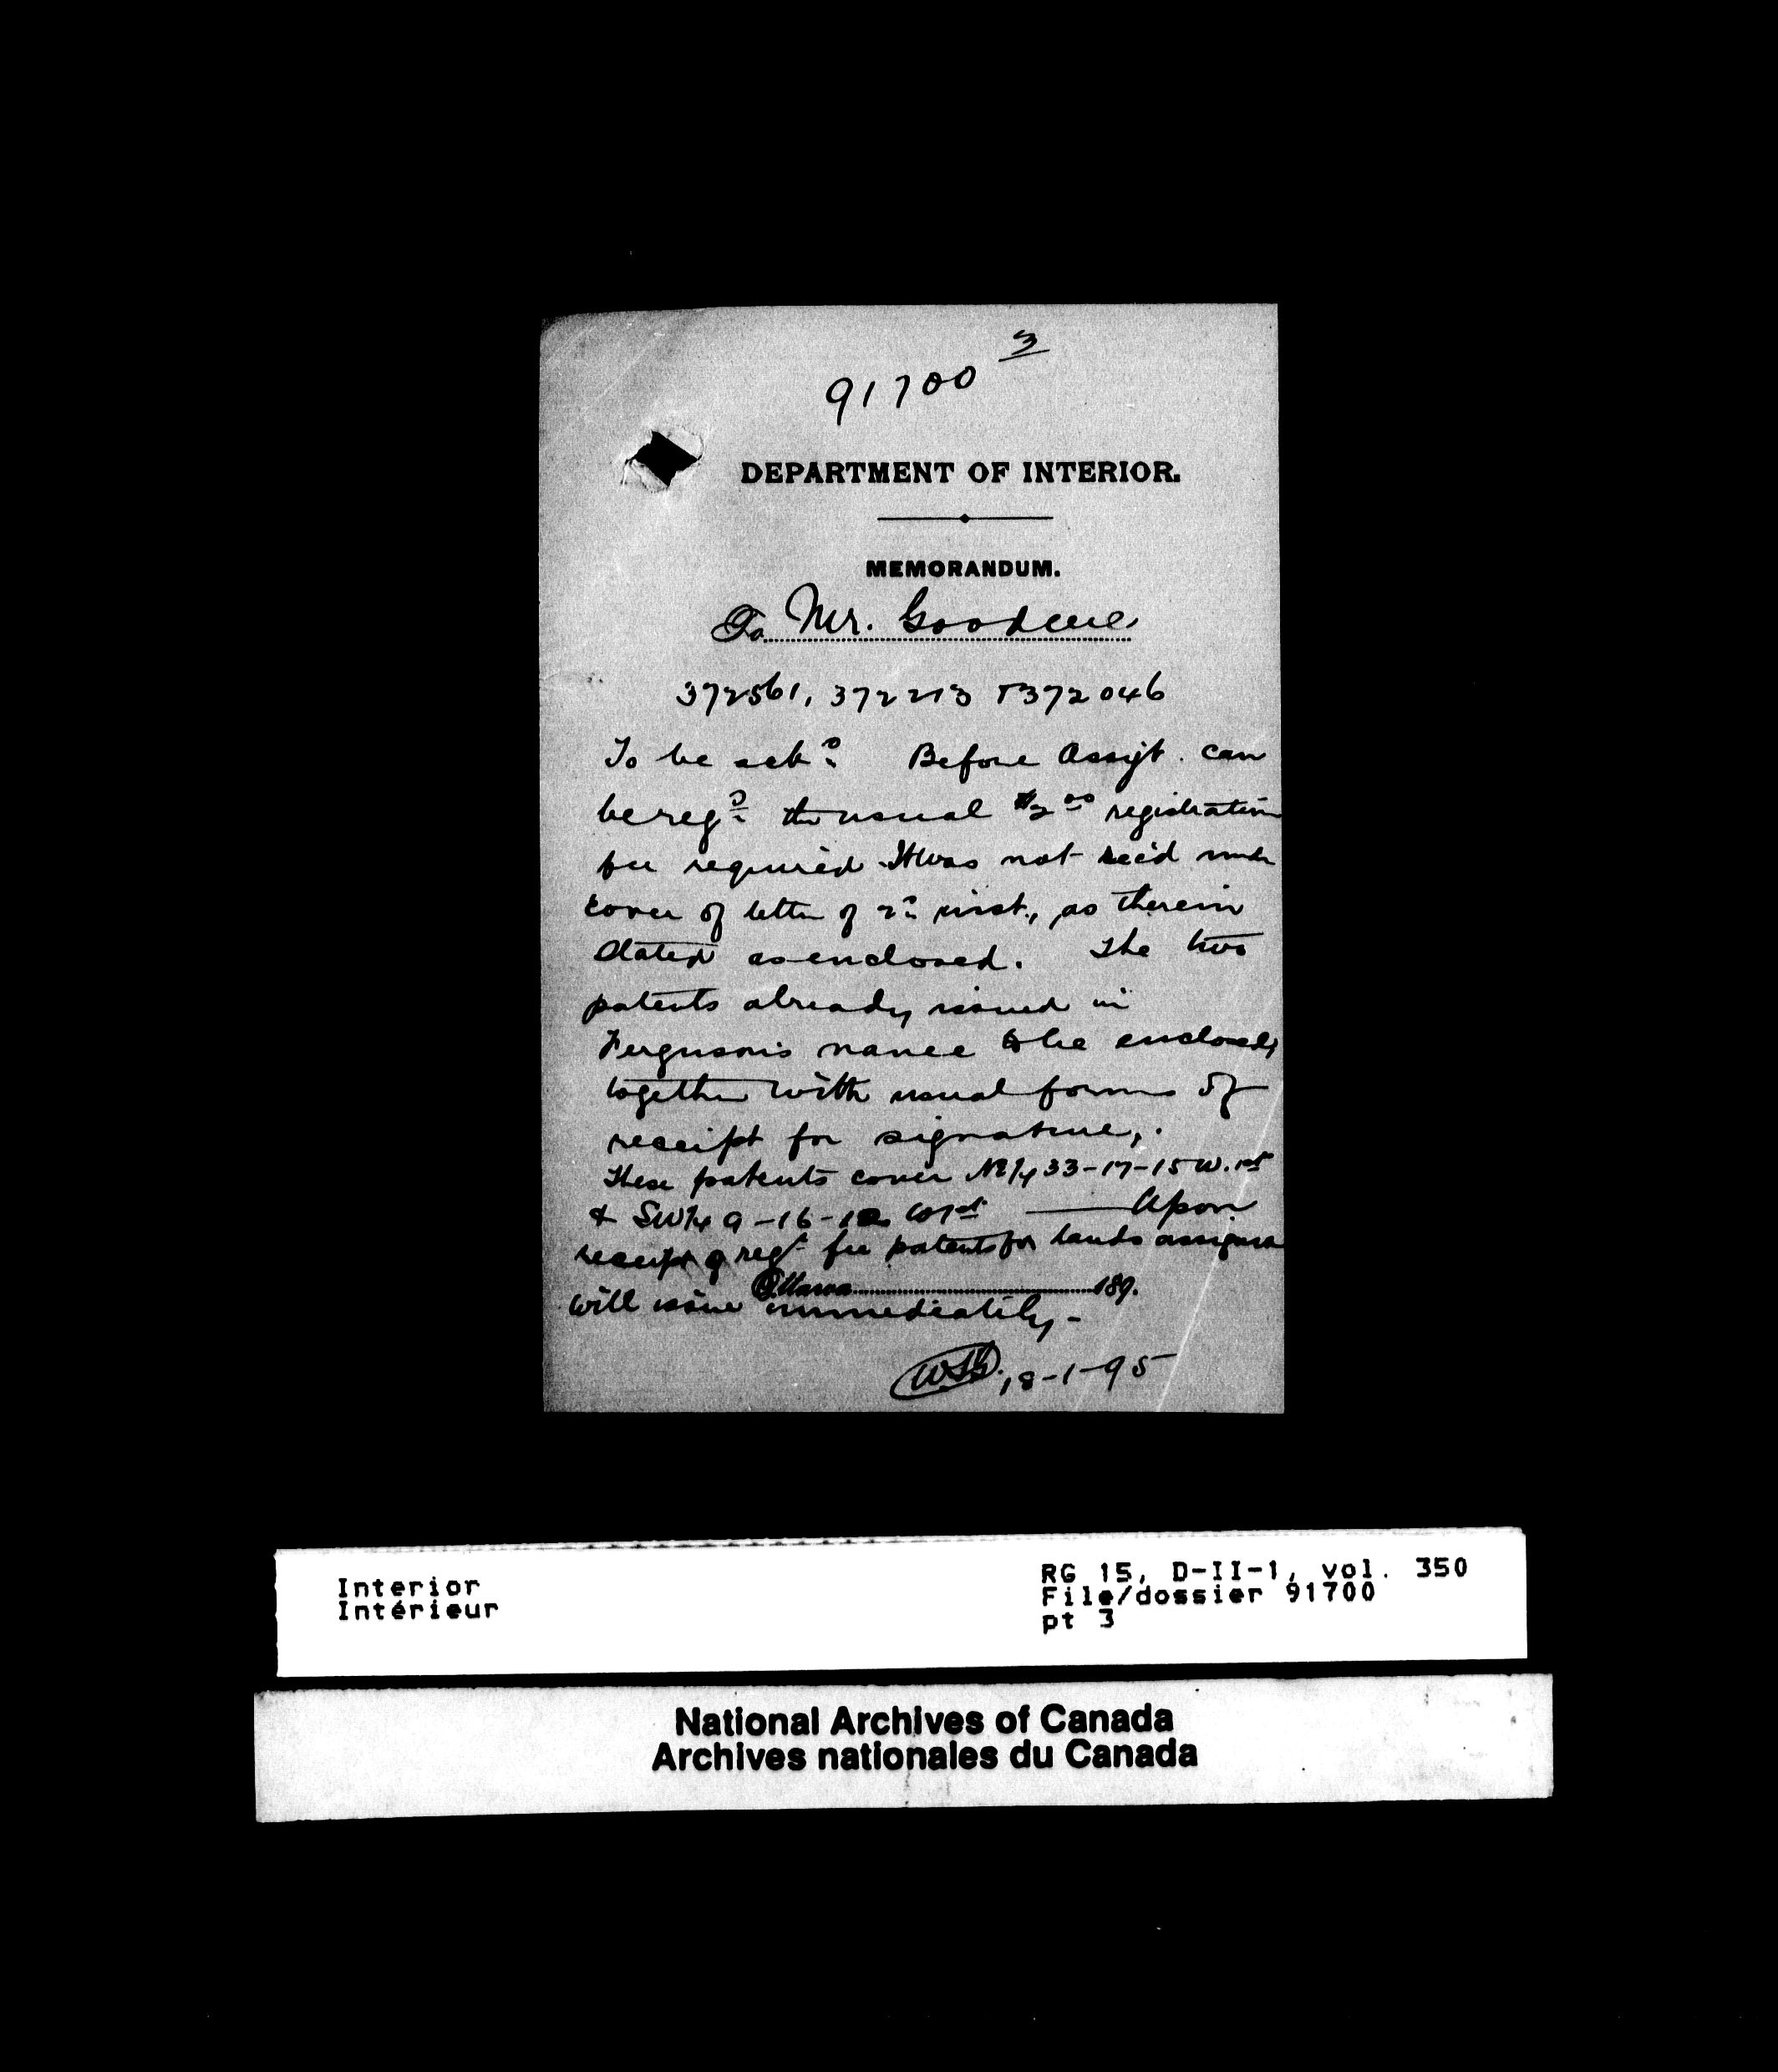 3
91700
DEPARTMENT OF INTERIOR.
MEMORANDUM.
To Mr. Goodeve
372561, 372213 & 372046
To be ackd. Before Assgt. can
be regd. the usual $2.00 registration
fee required. It was not rec'd under
cover of letter of 2d inst., as therein
stated as enclosed. The two
patents already issued in
Ferguson's name to be enclosed,
together with usual forms of
receipt for signature,.
These patents cover NE1/4 33-17-15 W. 1st
& SW1/4 9-16-12 W 1st — Upon
receipt of regn fee patents for lands assigned
Ottawa 189.
will issue immediately -
18-1-95
Interior
Intérieur
RG 15, D-II-1, vol. 350
File/dossier 91700
pt 3
National Archives of Canada
Archives nationales du Canada